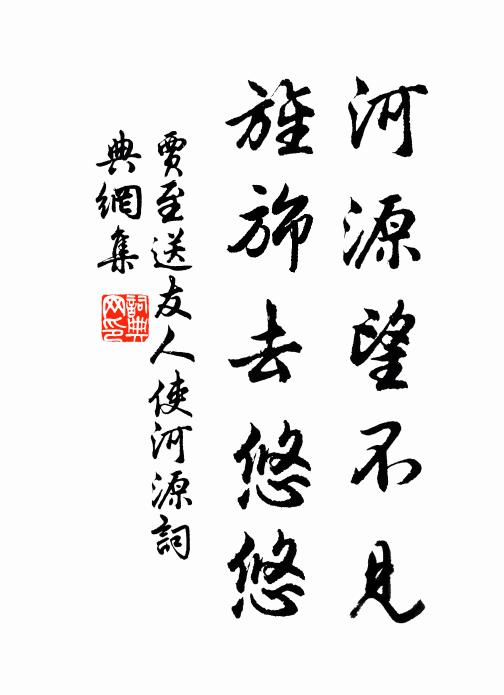 河源望不見
旌旆去悠悠
賈至送友人使河源詞
典網集
詞典网印